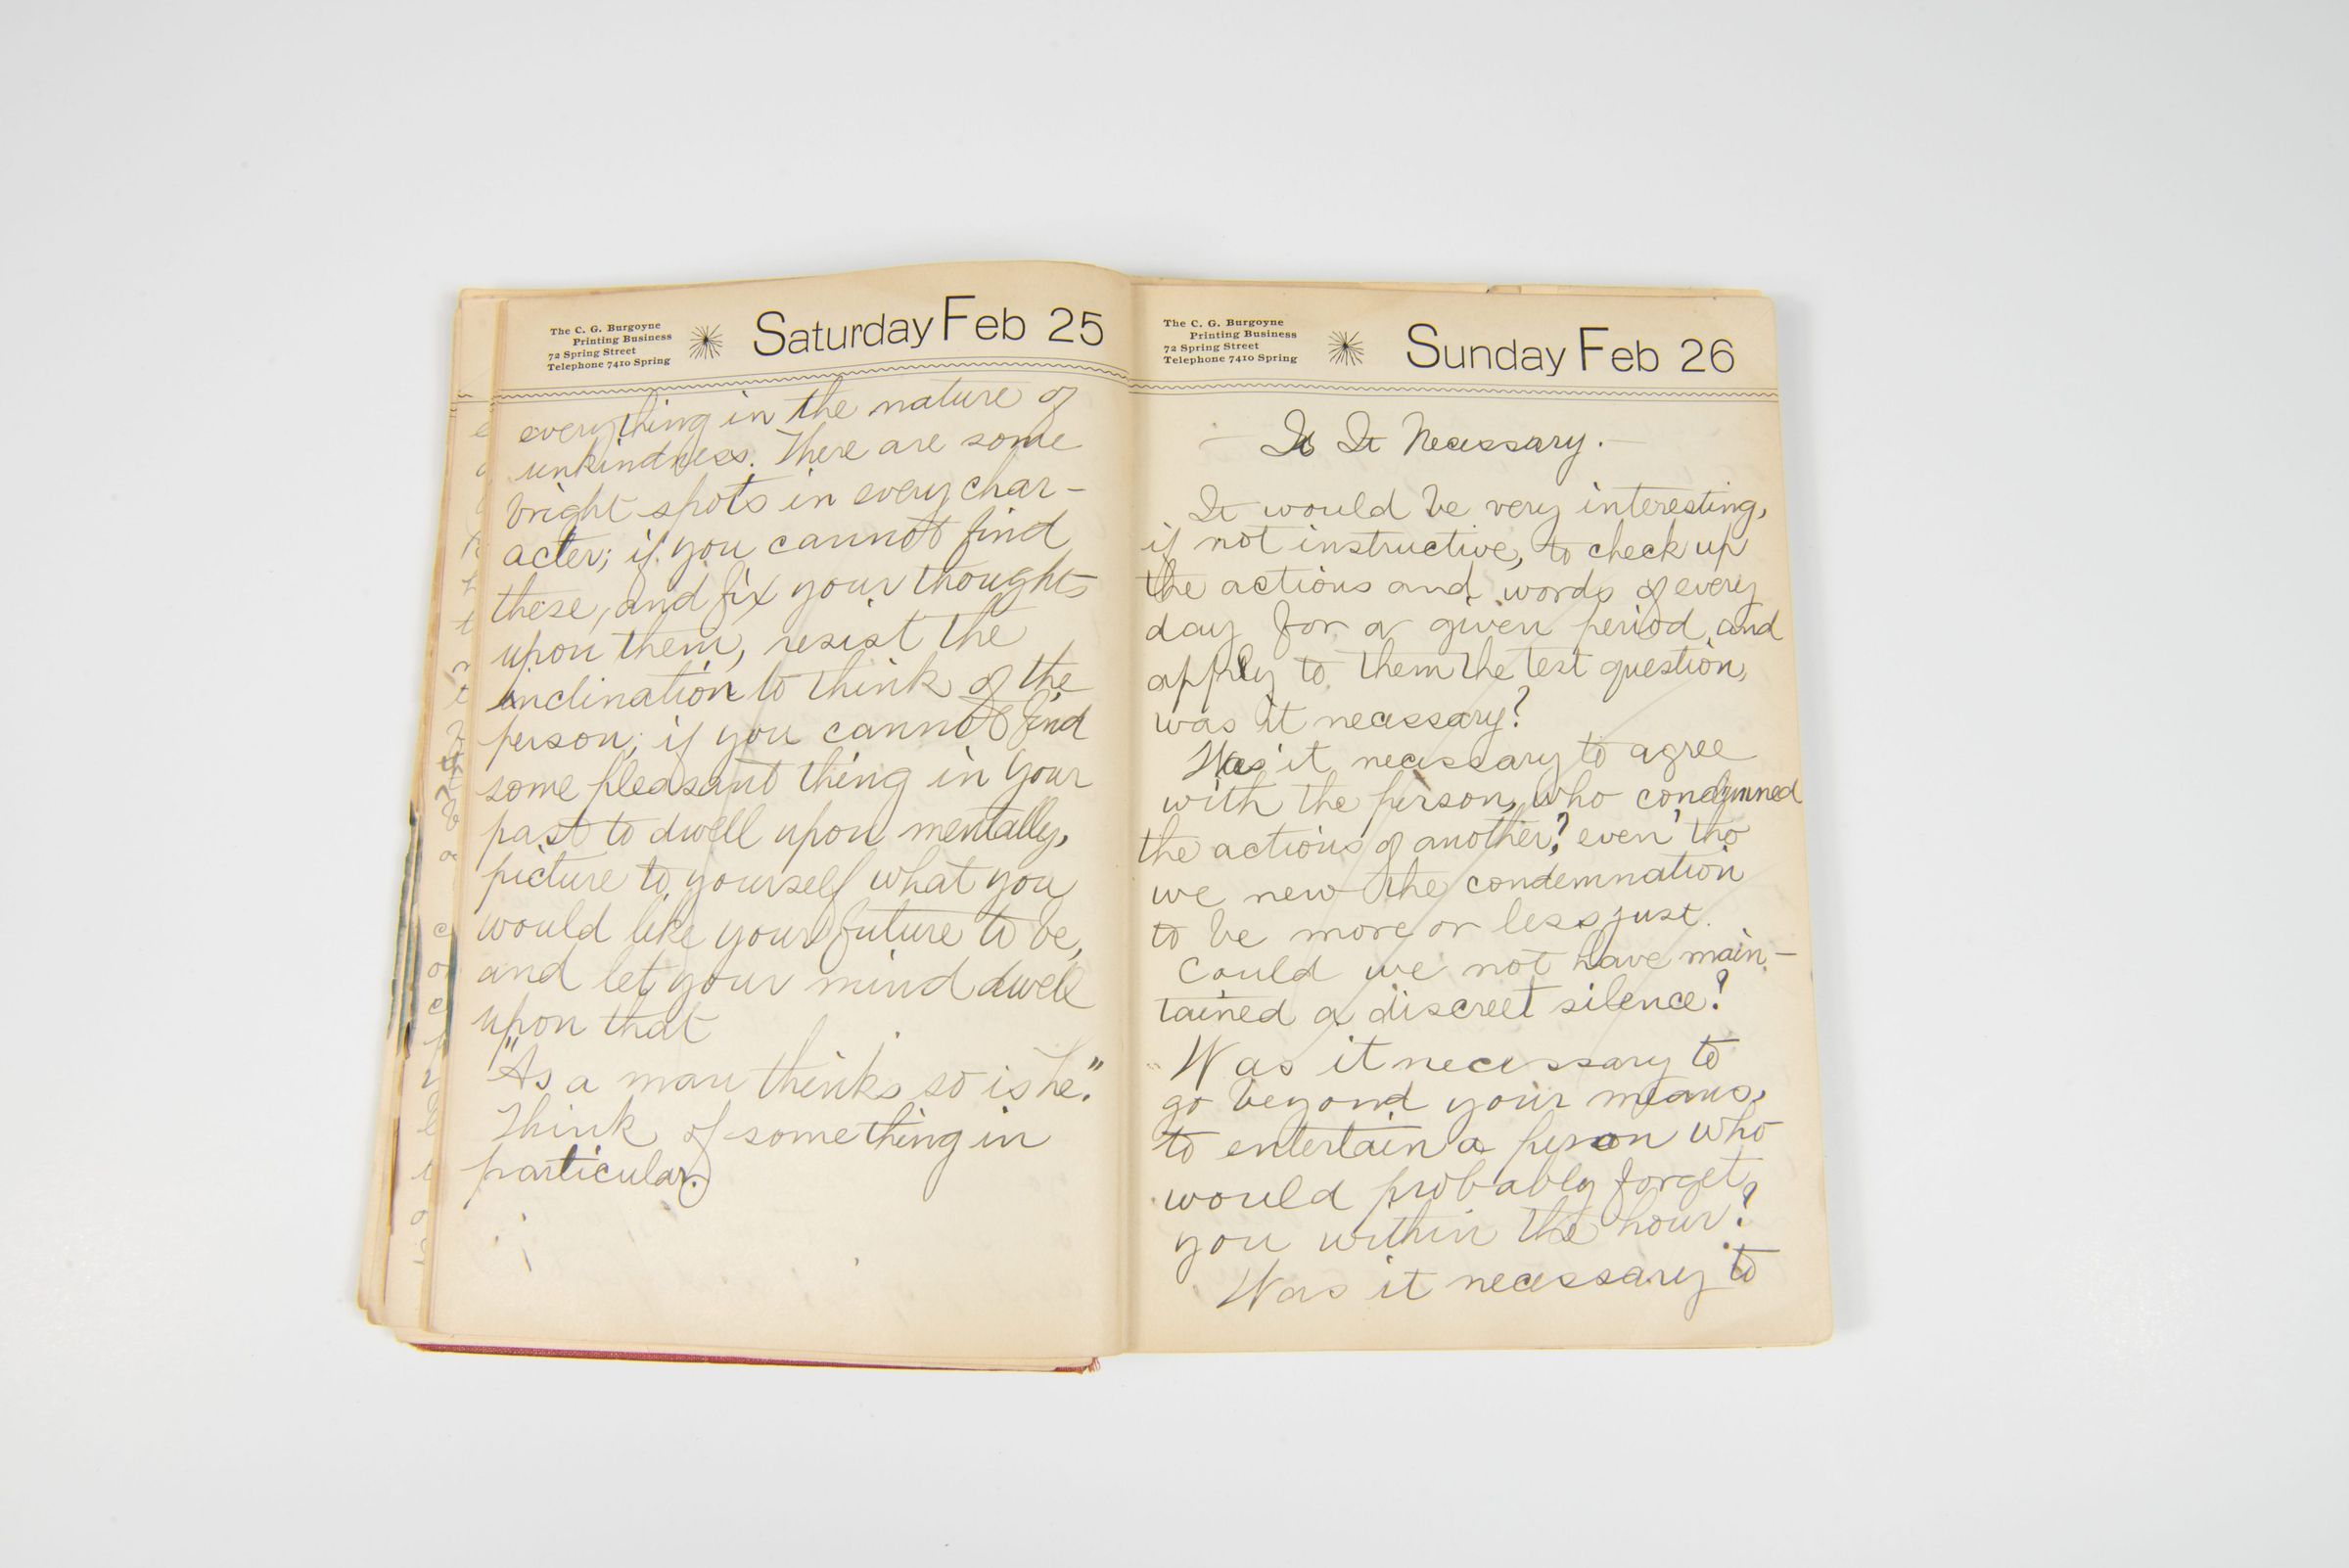 The C. G. Burgoyne
Printing Business
72 Spring Street
Telephone 7410 Spring
Saturday Feb 25
everything in the nature of
unkindness. There are some
bright spots in every char-
acter; if you cannot find
these, and fix your thoughts
upon them, resist the
inclination to think of the
person; if you cannot find
some pleasant thing in your
past to dwell upon mentally,
picture to yourself what you
would like your future to be,
and let your mind dwell
upon that
"As a man thinks so is he."
Think of something in
particular.
The C. G. Burgoyne
Printing Business
72 Spring Street
Telephone 7410 Spring
Sunday Feb 26
— Is It Necessary. —
It would be very interesting,
if not instructive, to check up
the actions and words of every
day for a given period, and
apply to them the test question,
was it necessary?
Was it necessary to agree
with the person, who condemned
the actions of another? even tho'
we new the condemnation
to be more or less just.
Could we not have main-
tained a discreet silence?
Was it necessary to
go beyond your means,
to entertain a person who
would probably forget
you within the hour?
Was it necessary to